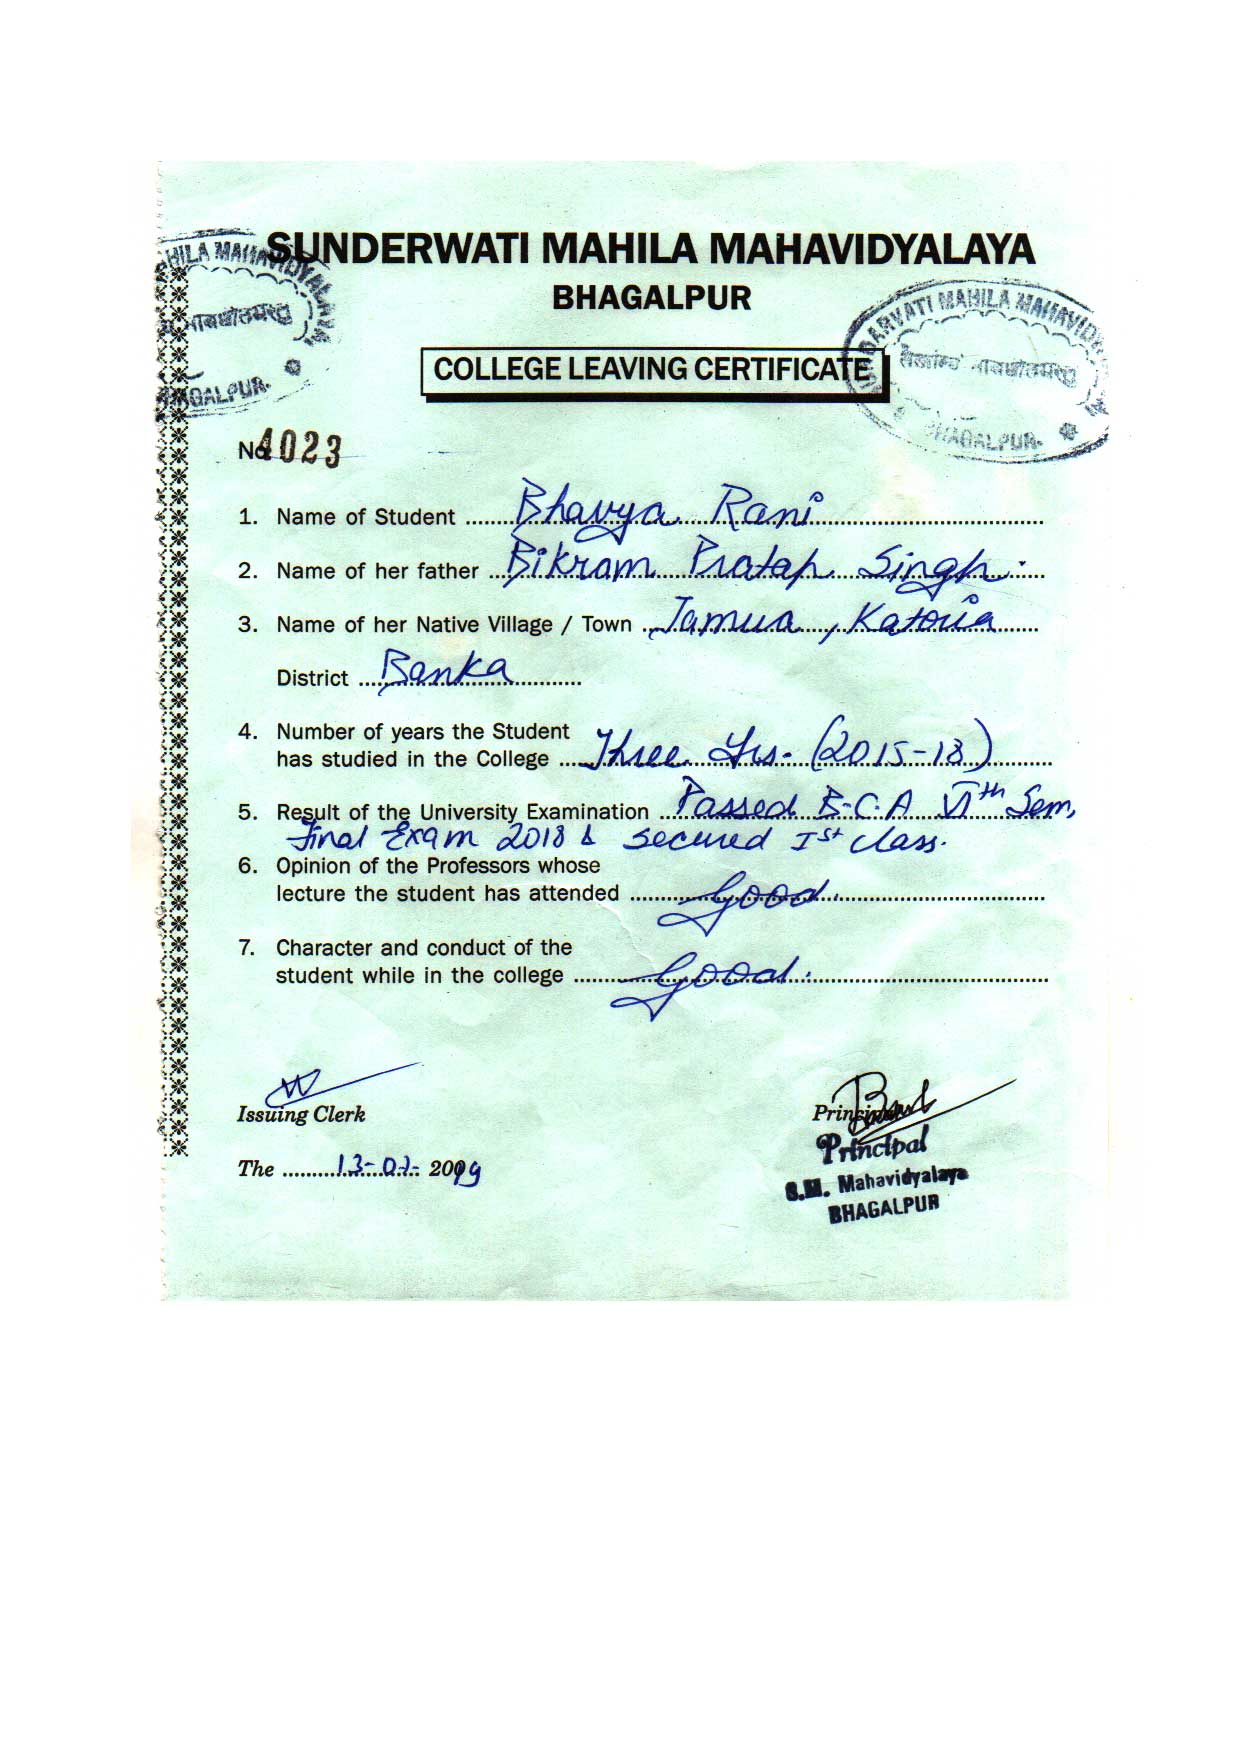 SUNDERWATI MAHILA MAHAVIDYALAYA
BHAGALPUR
HILA MAHAVIDYALAYA
BHAGALPUR
SUNDARVATI MAHILA MAHAVID
BHAGALPUR
COLLEGE LEAVING CERTIFICATE
No. 4023
1. Name of Student Bhavya Rani
2. Name of her father Bikram Pratap Singh
3. Name of her Native Village / Town Jamua, Katoria
District Banka
4. Number of years the Student
has studied in the College Three Yrs. (2015-18)
5. Result of the University Examination Passed B.C.A VIth Sem,
Final Exam 2018 & secured Ist class.
6. Opinion of the Professors whose
lecture the student has attended Good.
7. Character and conduct of the
student while in the college Good.
Issuing Clerk
Principal
Principal
S.M. Mahavidyalaya
BHAGALPUR
The 13-07- 2019